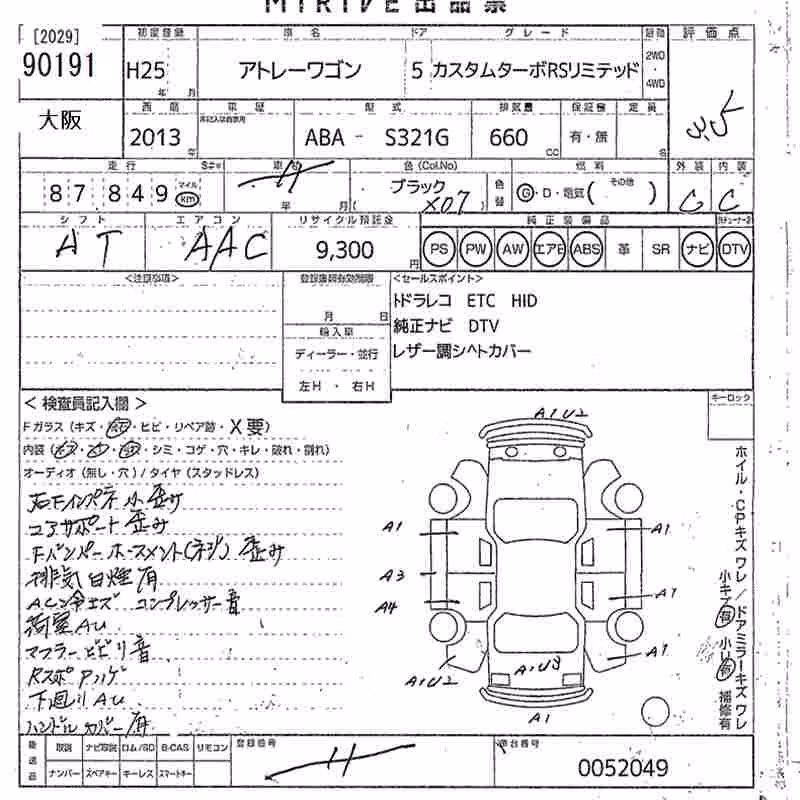 MIRIVE 出品票
[2029]
90191
初度登録 車名 ドア グレード 評価点
H25 年 月 アトレーワゴン 5 カスタムターボRSリミテッド 2WD・4WD
3.5
大阪
西暦 車歴 型式 排気量 保証書 定員
2013年 ABA - S321G 660 CC 有・無 名
走行 S#* 車検 色(Col.No) 燃料 外装 内装
87 849 マイル km 年 月 ブラック 色替 G・D・電気( その他 )
( X07 ) C C
シフト エアコン リサイクル預託金 純正装備品
AT AAC 9,300円 PS PW AW エアB ABS 革 SR ナビ DTV
<注意事項> <セールスポイント>
月 日 ドラレコ ETC HID
輸入車 純正ナビ DTV
ディーラー・並行 レザー調シートカバー
左H・右H
キーロック
<検査員記入欄>
Fガラス(キズ・ ・ヒビ・リペア跡・X要)
内装( ・ ・ ・シミ・コゲ・穴・キレ・破れ・割れ)
オーディオ(無し・穴)/タイヤ(スタッドレス)
右Fインパネ 小歪み
コアサポート 歪み
Fバンパー ホースメント(ネジ)歪み
排気白煙有
ACン冷エズ コンプレッサー音
荷室AU
マフラービビリ音
Rスポ
下廻りAU
ハンドルカバー有
A1U2
A1
A3
A4
A1
A1U2
A1U3
A1
ホイル・CPキズ ワレ/ドアミラーキズ ワレ
小キズ有 小U有 補修有
後送品 取説 ナビ取説 ロム/SD B-CAS リモコン 登録番号 車台番号
ナンバー スペアキー キーレス スマートキー 0052049